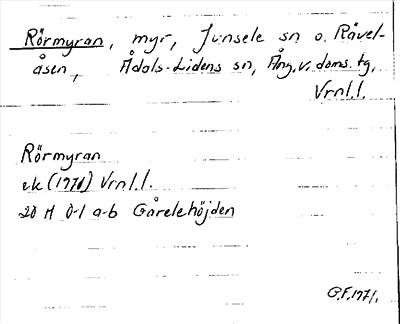 Rörmyran, myr, Junsele sn o. Rävel-
åsen, Ådals-Lidens sn, Ång. v. doms. tg,
Vrnl.l.
Rörmyran
ek (1971) Vrnl.l.
20 H 0-1 a-b Gårelehöjden
G.F. 1971.